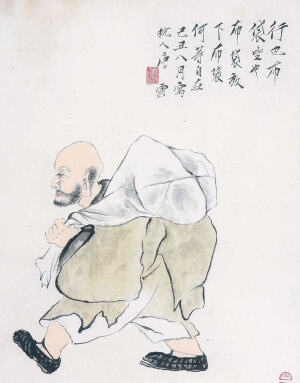 行也布
袋坐也
布袋放
下布袋
何等自在
己丑八月寫
杭人唐雲